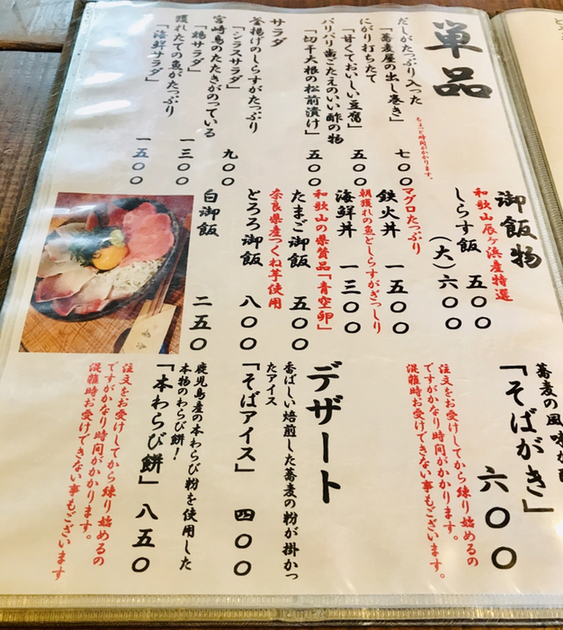 単品
だしがたっぷり入った
「蕎麦屋の出し巻き」 七〇〇
ちょっと時間がかかります。
にがり打ちたて
「甘くておいしい豆腐」 五〇〇
パリパリ歯ごたえのいい酢の物
「切干大根の松前漬け」 五〇〇
サラダ
釜揚げのしらすがたっぷり
「シラスサラダ」 九〇〇
宮崎鳥のたたきがのっている
「鶏サラダ」 一三〇〇
獲れたての魚がたっぷり
「海鮮サラダ」 一五〇〇
御飯物
和歌山辰ヶ浜産特選
しらす飯 五〇〇
(大)六〇〇
マグロたっぷり
鉄火丼 一五〇〇
朝獲れの魚としらすがぎっしり
海鮮丼 一三〇〇
和歌山の県賞品「青空卵」
たまご御飯 五〇〇
奈良県産つくね芋使用
とろろ御飯 八〇〇
白御飯 二五〇
蕎麦の風味が
「そばがき」 六〇〇
注文をお受けしてから練り始めるの
ですがかなり時間がかかります。
混雑時お受けできない事もございます。
デザート
香ばしい焙煎した蕎麦の粉が掛かっ
たアイス
「そばアイス」 四〇〇
鹿児島産の本わらび粉を使用した
本物のわらび餅!
「本わらび餅」 八五〇
注文をお受けしてから練り始めるの
ですがかなり時間がかかります。
混雑時お受けできない事もございます